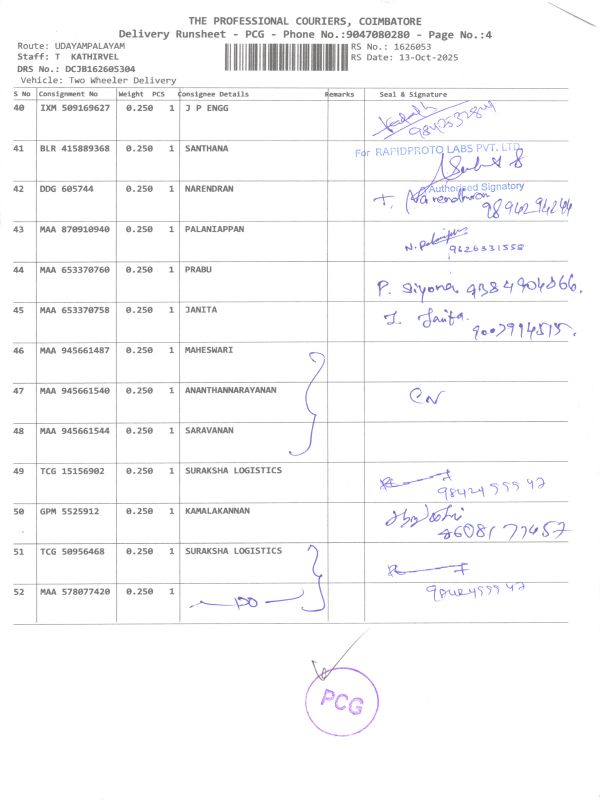 THE PROFESSIONAL COURIERS, COIMBATORE
Delivery Runsheet - PCG - Phone No.:9047080280 - Page No.:4
Route: UDAYAMPALAYAM RS No.: 1626053
Staff: T KATHIRVEL RS Date: 13-Oct-2025
DRS No.: DCJB162605304
Vehicle: Two Wheeler Delivery
S No Consignment No Weight PCS Consignee Details Remarks Seal & Signature
40 IXM 509169627 0.250 1 J P ENGG
9842532804
41 BLR 415889368 0.250 1 SANTHANA
For RAPIDPROTO LABS PVT. LTD
Authorised Signatory
42 DDG 605744 0.250 1 NARENDRAN
T. Narendhran
43 MAA 870910940 0.250 1 PALANIAPPAN
9626331558
44 MAA 653370760 0.250 1 PRABU
P. Siyona
45 MAA 653370758 0.250 1 JANITA
J. Janita.
46 MAA 945661487 0.250 1 MAHESWARI
47 MAA 945661540 0.250 1 ANANTHANNARAYANAN
CN
48 MAA 945661544 0.250 1 SARAVANAN
49 TCG 15156902 0.250 1 SURAKSHA LOGISTICS
50 GPM 5525912 0.250 1 KAMALAKANNAN
51 TCG 50956468 0.250 1 SURAKSHA LOGISTICS
52 MAA 578077420 0.250 1
DO
PCG